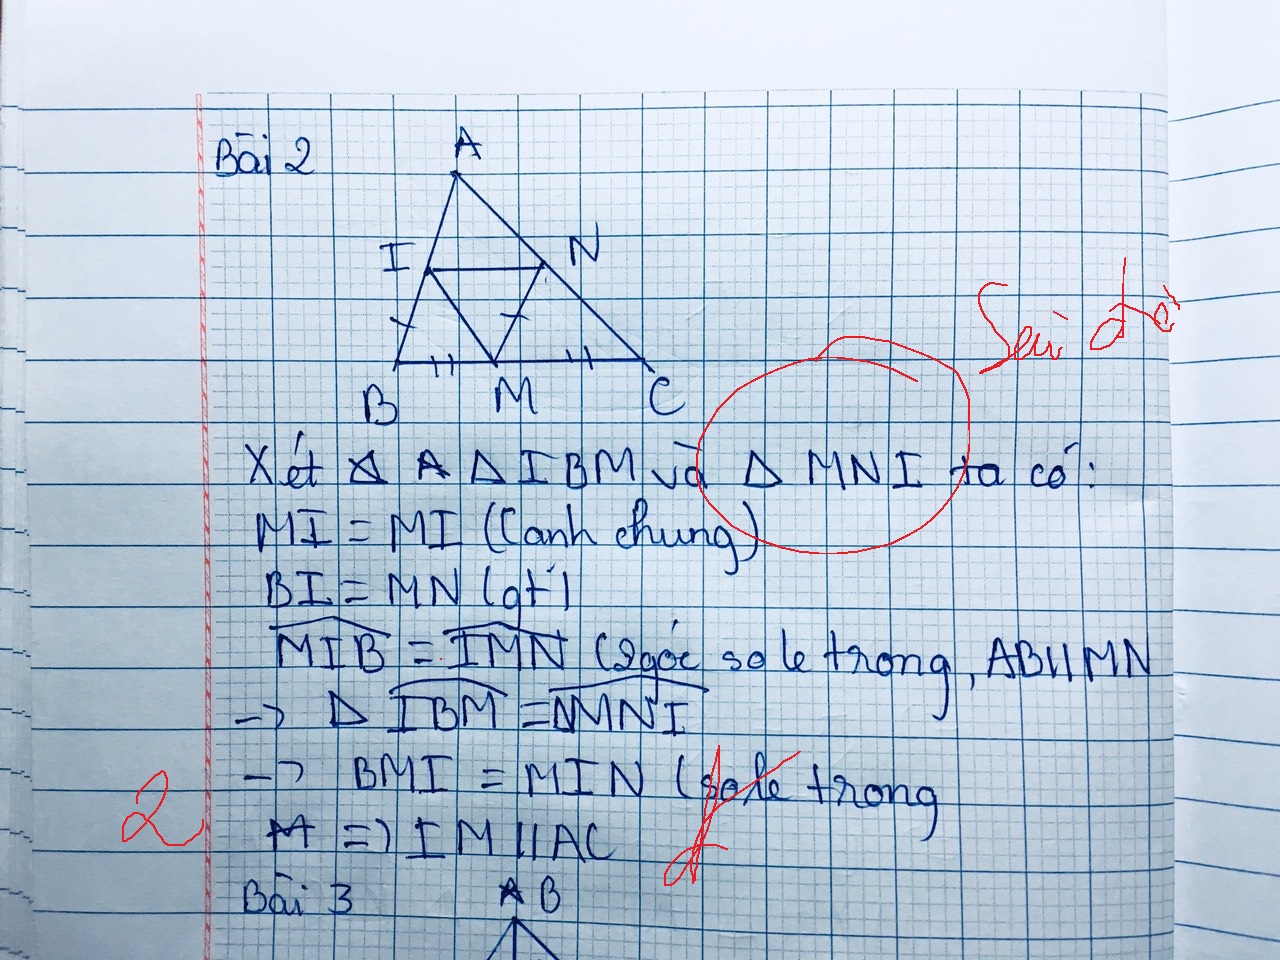 Bài 2
A
I N
B M C
Sai đề
Xét Δ A Δ IBM và Δ MNI ta có:
MI = MI (Cạnh chung)
BI = MN (gt)
MIB = IMN (2 góc so le trong, AB // MN
-> Δ IBM = ΔMNI
-> BMI = MIN (so le trong
2 M => IM // AC
Bài 3 A B